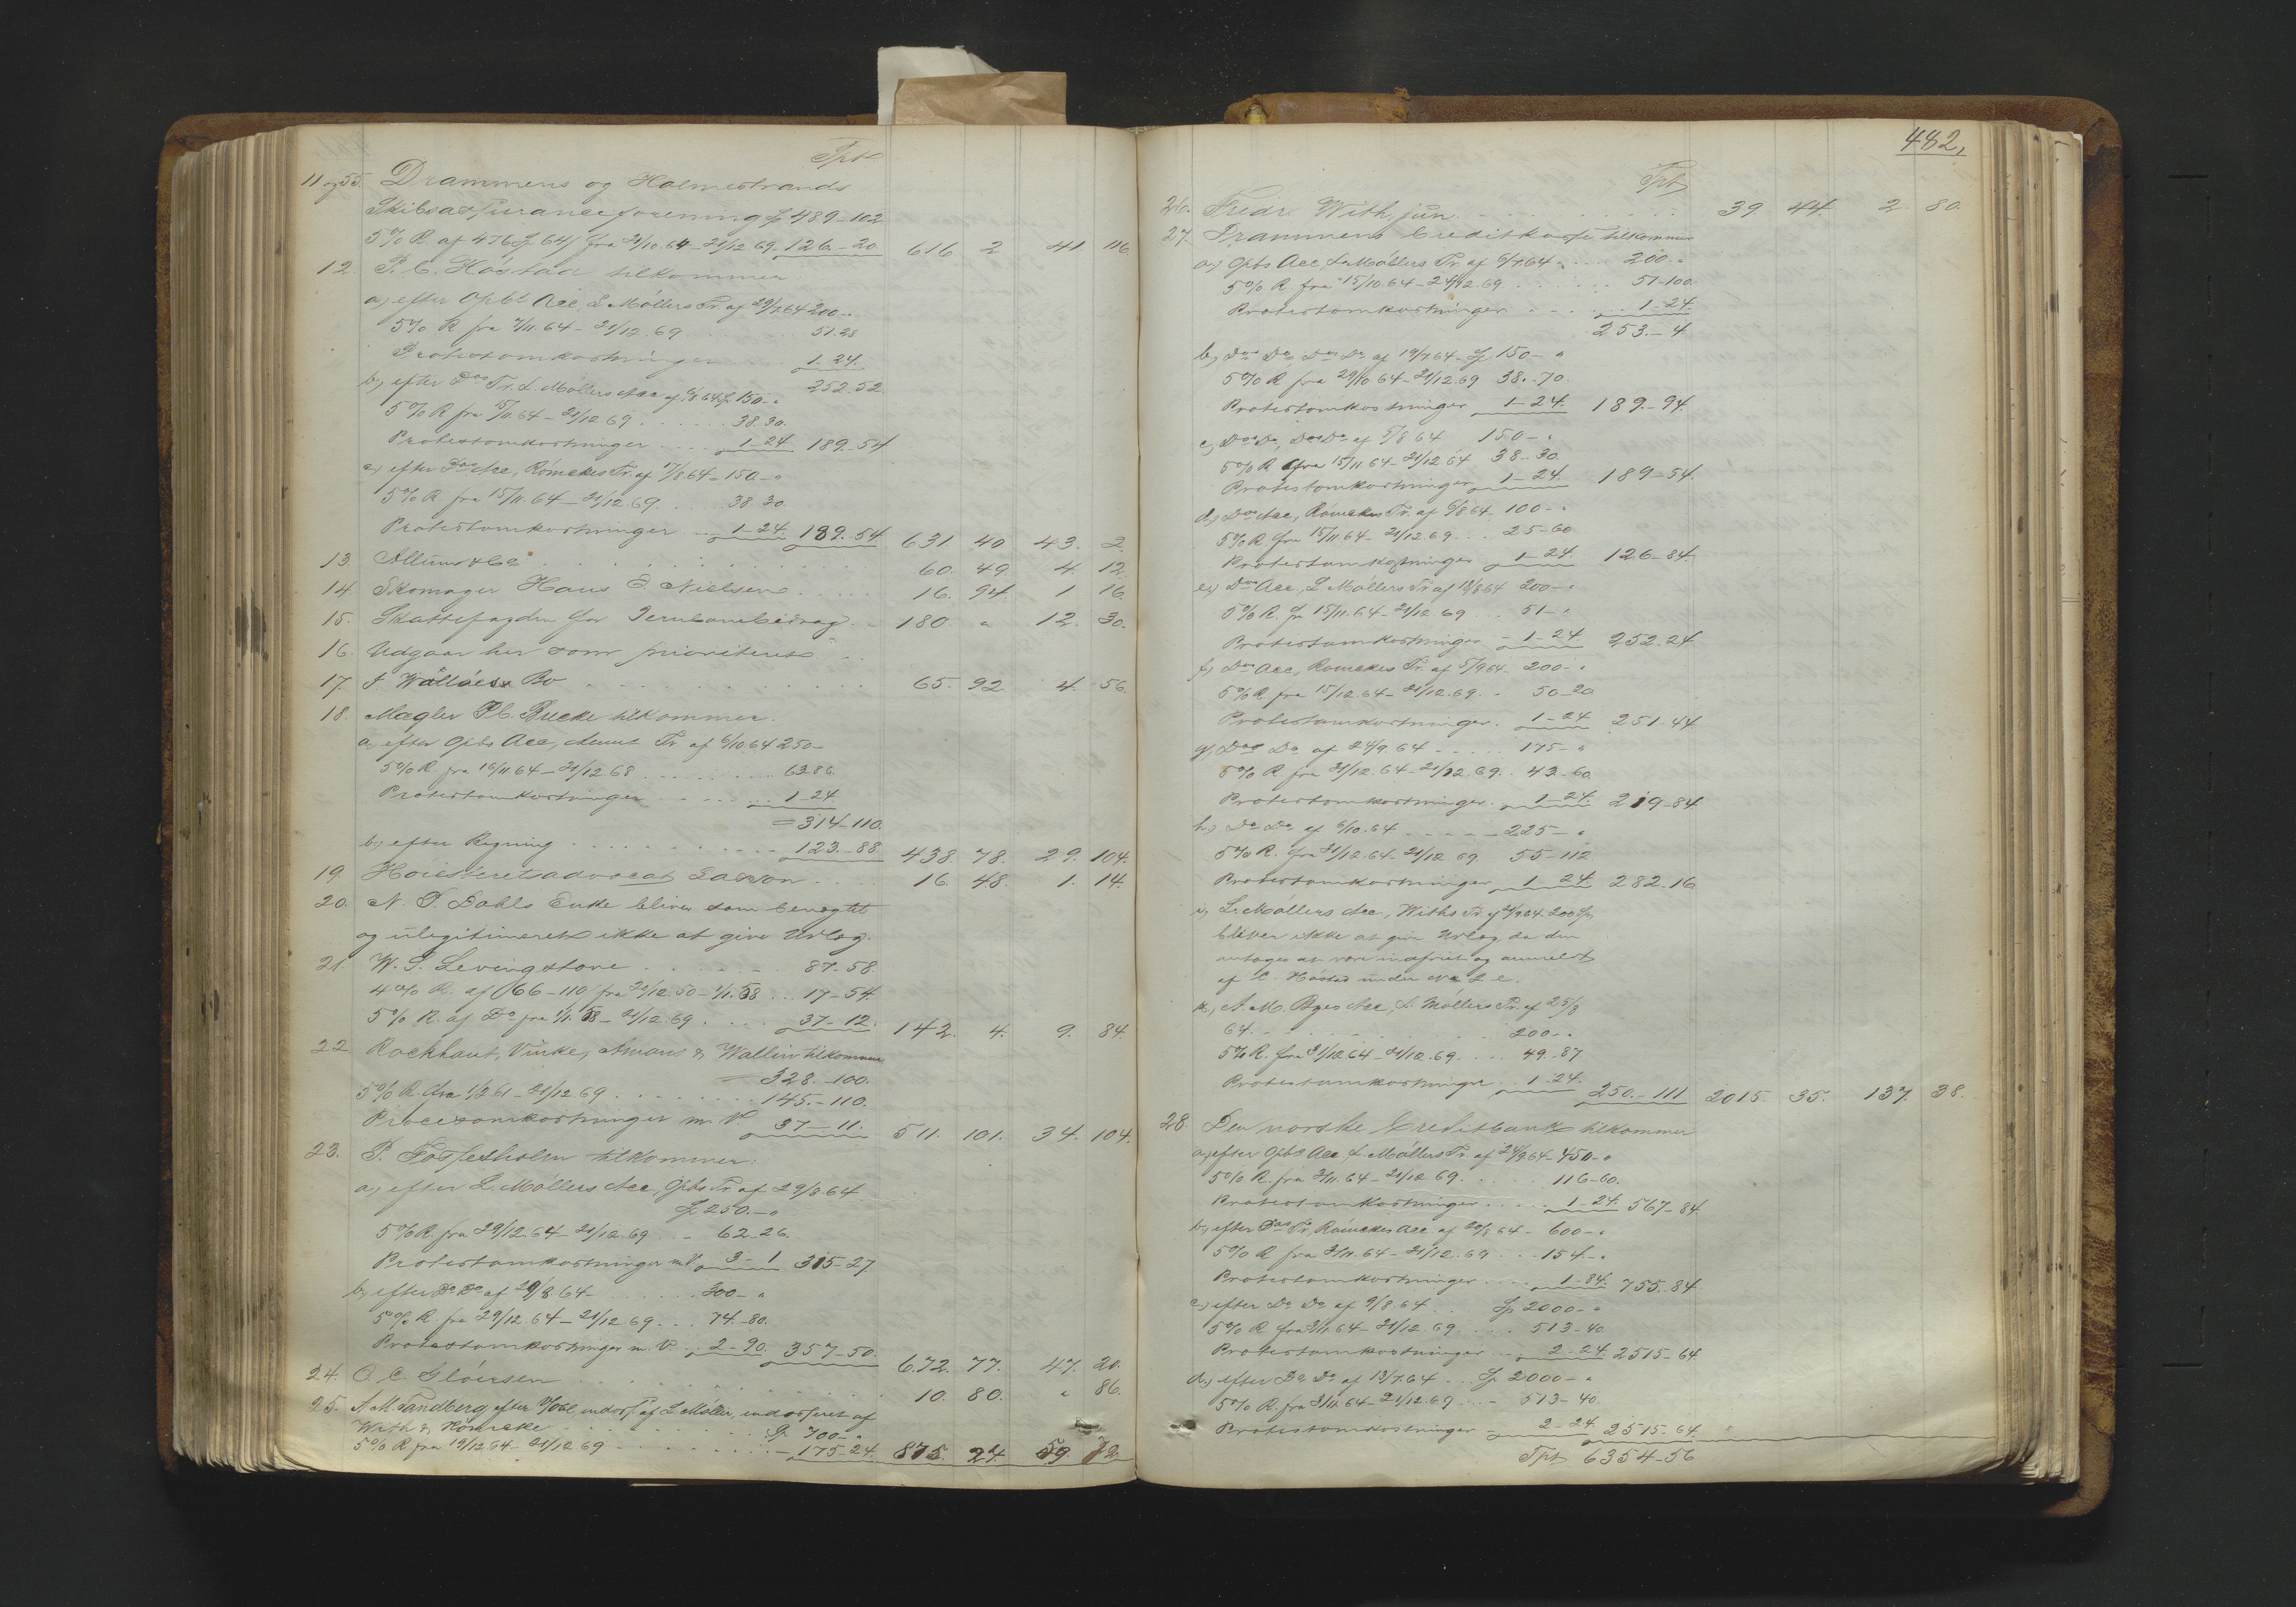 Tpt
11 og 55. Drammens og Holmestrands
Skibsassuranceforening Sp 489-102
5% R. af 476 Sp 64 s fra 21/10.64-21/12 69. 126-20 616 2 41 116
12. P. C. Høstad tilkommer
a, efter Opbs Acc, L Møllers Tr. af 29/7.64 200-"
5% R fra 4/11.64-21/12.69 51.28
Protestomkostninger 1-24.
252-52
b, efter Dos Tr. L. Møllers Acc af 6/8 64 Sp 150-"
5% R fra 15/11.64-21/12 69 . . . . . 38.30.
Protestomkostninger 1-24. 189.-54
c, efter Dos Acc, Römckes Tr. af 17/8.64-150-"
5% R. fra 15/11.64-21/12.69 . . . . 38.30.
Protestomkostninger 1-24. 189.-54 631. 40 43. 2.
13. Allum & Co . . . . . 60. 49. 4. 12.
14. Skomager Hans Nielsen . . . . 16. 94. 1 16.
15. Skattefogden for Jernbanebidrag 180. " 12. 30.
16. Udgaar her som prioriteret . .
17. J. Wøllóes Bo . . . . . 65. 92 4. 56.
18. Mægler Bucke tilkommer.
a, efter Opbs Acc, Tr af 6/10.64 250-
5% R. fra 16/11.64-21/12.68 . . . . . 63.86.
Protestomkostninger . . . . . 1-24
=314-110.
b, efter Regning . . . . . 123.-88 438. 78. 29. 104.
19 Høiesteretsadvocat Saxon . . . . 16. 48. 1. 14.
20. N. P. Dahls Enke bliver som benægtet
og ulegitimeret ikke at give Udlæg.
21. W. S. Levingstone . . . . . 87-58
4% R. af 66-110 fra 20/12.50-1/1.58 . . 17-54.
5% R. af Do fra 1/1.58-21/12.69 . . . . 37-12. 142. 4. 9. 84.
22 Rockhaut, Vinke, Amans & Wallin tilkommer
328.-100.
5% R. fra 1/2 61-21/12.69 . . . . . 145.-110.
Procesomkostninger m. V. 37-11. 511. 101. 34. 104.
23. P. Fossesholm tilkommer:
a, efter L. Møllers Acc, Opbs Tr. af 29/8 64
Sp 250.-"
5% R. fra 29/12.64-21/12.69 . . - 62.26.
Protestomkostninger m.V. 3-1 315-27
b, efter Do Do af 29/8 64- . . . . . 300-"
5% R. fra 29/12.64-21/12.69 . . . 74.-80.
Protestomkostninger m. V. . . 2-90. 357-50. 672. 77. 47. 20.
24. O. C. Gløersen . . . . . 10. 80. " 86.
25. A. M. Sandberg efter endoss af L Møller, endosseret af
With & Römcke . . . . . Sp 700-"
5% R fra 19/12.64-21/12 69 . . . . . 175-24. 875. 24. 59. 72.
482,
Tpt
26. Fredr. With, jun. . . . . 39. 44. 2. 80.
27. Drammens Creditkasse tilkommer
a, Opbs Acc, L. Møllers Tr. af 6/7.64 . . . 200-"
5% R. fra 15/10.64-21/12.69 . . . . . 51-100.
Protestomkostninger . . . . . 1-24.
253.-4.
b, Dos Do, Dos Do af 19/7.64-Sp 150-"
5% R fra 29/10 64-21/12.69 38.-70.
Protestomkostninger 1-24. 189.-94.
c, Dos Do, Dos Do af 5/8 64 150-"
5% R. fra 15/11 64-21/12.64 38-30.
Protestomkostninger 1-24. 189-54.
d, Dos Acc, Römckes Tr. af 6/8 64- 100-"
5% R. fra 15/11.64-21/12.69 . . . 25-60
Protestomkostninger 1-24. 126-84.
e, Dos Acc, L. Møllers Tr af 13/8 64 200-"
5% R. fr 15/11.64-21/12.69 . . . 51-"
Protestomkostninger - 1-24. 252.24.
f, Dos Acc, Römckes Tr. af 5/9.64- 200-"
5% R. fra 15/12.64-21/12.69. - 50-20
Protestomkostninger. 1-24 251-44.
g, Dos Do af 24/9.64 . . . . . 175-"
5% R fra 31/12.64-21/12.69. . 43-60.
Protestomkostninger. 1-24. 219-84
h, Do Do af 6/10.64 . . . . . 225-"
5% R. fra 31/12.64-21/12 69 55-112.
Protestomkostninger 1-24. 282-16
i, L. Møllers Acc, Withs Tr. af 24/9.64 200 Sp,
bliver ikke at give Udlæg, da den
antages at være indfriet og anmeldt
af C. Høstad under
k, A. M. Acc, L. Møllers Tr. af 25/8
64. - . . . . . 200-"
5% R. fra 31/12.64-21/12.69 . . . . 49.-87
Protestomkostninger . . 1-24. 250.-111 2015. 35. 137. 38.
28. Den norske Creditbank tilkommer
a, efter Opbs Acc, L. Møllers Tr. af 24/9.64-450-"
5% R. fra 2/11.64-21/12.69 . . . . 116-60.
Protestomkostninger . . . . . 1-24. 567-84.
b, efter Dos Tr, Römckes Acc af 20/8 64- 600-"
5% R fra 2/11.64-21/12.69 . . . 154-"
Protestomkostninger . . . . 1-84. 755-84
c, efter Do Do af 9/8.64 . . Sp 2000-"
5% R. fra 2/11.64-21/12.69 . . . . 513-40
Protestomkostninger . . . 2-24. 2515-64
d, efter Do Do af 13/7.64 . . . Sp 2000-"
5% R. fra 2/11.64-21/12.69 . . . - 513-40.
Protestomkostninger 2-24. 2515-64.
Tpt 6354-56